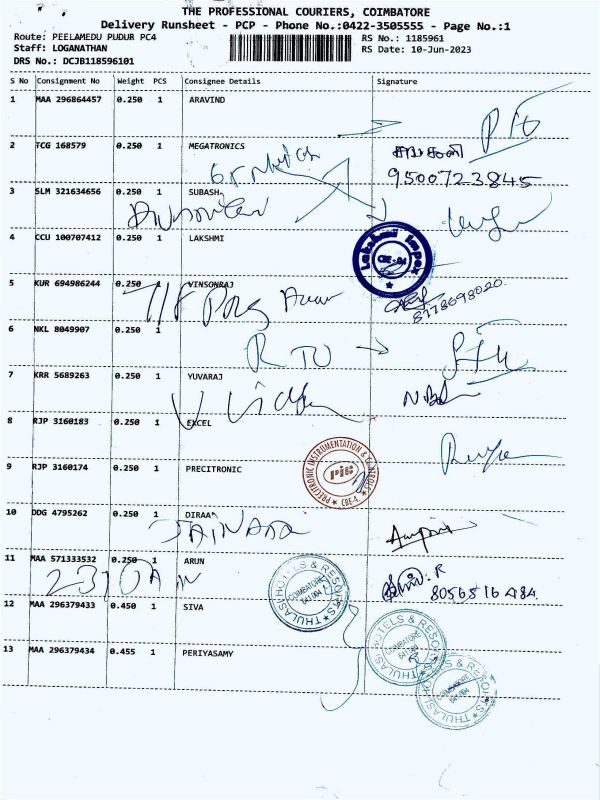 THE PROFESSIONAL COURIERS, COIMBATORE
Delivery Runsheet - PCP - Phone No.:0422-3505555 - Page No.:1
Route: PEELAMEDU PUDUR PC4 RS No.: 1185961
Staff: LOGANATHAN RS Date: 10-Jun-2023
DRS No.: DCJB118596101
S No Consignment No Weight PCS Consignee Details Signature
1 MAA 296864457 0.250 1 ARAVIND
2 TCG 168579 0.250 1 MEGATRONICS
9500723845
3 SLM 321634656 0.250 1 SUBASH
4 CCU 100707412 0.250 1 LAKSHMI
Lakshmi Impex
CBE - 04
5 KUR 694986244 0.250 1 VINSONRAJ
8778698020
6 NKL 8049907 0.250 1
RTO
7 KRR 5689263 0.250 1 YUVARAJ
8 RJP 3160183 0.250 1 EXCEL
9 RJP 3160174 0.250 1 PRECITRONIC
PRECITRONIC INSTRUMENTATION & CONTROLS
PIC
CBE-4.
10 DDG 4795262 0.250 1 DIRAA
11 MAA 571333532 0.250 1 ARUN
8056516484
THULASI HOTELS & RESORTS
COIMBATORE
641 004
12 MAA 296379433 0.450 1 SIVA
THULASI HOTELS & RESORTS
COIMBATORE
641 004
13 MAA 296379434 0.455 1 PERIYASAMY
THULASI HOTELS & RESORTS
COIMBATORE
641 004